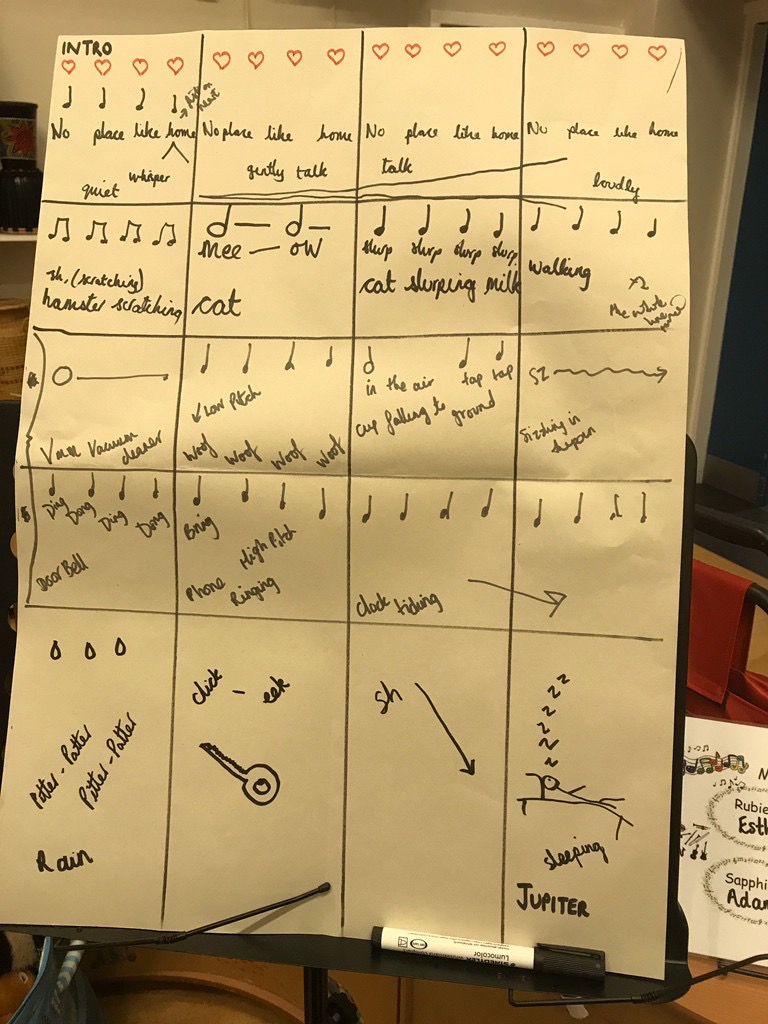 INTRO
No place like home
quiet
whisper
No place like home
gently talk
No place like home
talk
No place like home
loudly
sh, (scratching)
hamster scratching
Mee — OW
cat
slurp slurp slurp slurp
cat slurping milk
walking
x2
the whole
Vmm Vacuum
cleaner
Low Pitch
Woof Woof Woof Woof
in the air
tap tap
cup falling to ground
SZ
Sizzling in
Ding Dong Ding Dong
Door Bell
Bring
High Pitch
Phone Ringing
clock ticking
Pitter-Patter
Pitter-Patter
Rain
click - eek
Sh
z z z z z z
sleeping
JUPITER
STAEDTLER
Lumocolor
M
Rubie
Esth
Sapphi
Adam